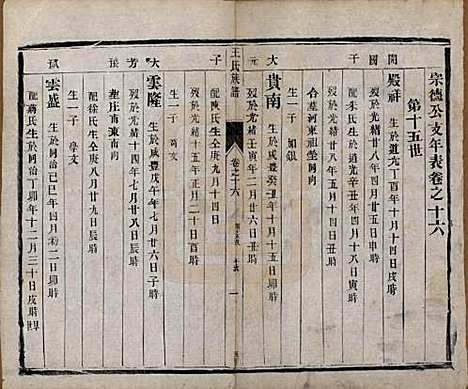 宗德公支年表卷之十六
第十五世
閏 殿祥 生於道光丁酉年十月十四日戌時
國 歿於光緒廿八年四月廿五日申時
子 配朱氏生於道光辛丑年四月十八日寅時
合墓河東祖塋丙向
生一子 如銀
大 貴南 生於咸豐癸丑年十月十五日卯時
元 歿於光緒壬寅年二月六日
王氏族譜
卷之十六
子 配陳氏生仝庚九月十四日
歿於光緒十五年正月二十日酉時
生一子
大 雲隆 生於咸豐戊午年七月廿六日子時
芳 歿於光緒十四年七月廿八日辰時
墓莊南東南向
長 配徐氏生仝庚八月廿九日辰時
生一子 學文
雲盛 生於同治己巳年四月初二日卯時
配蔣氏生於同治丁卯年十二月三十日戌時